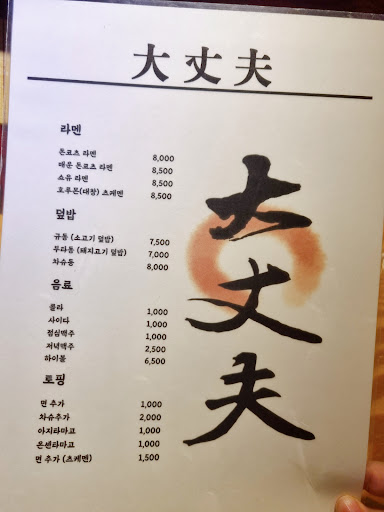 大丈夫
라멘
돈코츠 라멘 8,000
매운 돈코츠 라멘 8,500
쇼유 라멘 8,500
호루몬(대창) 츠케멘 8,500
덮밥
규동 (소고기 덮밥) 7,500
부타동 (돼지고기 덮밥) 7,000
차슈동 8,000
음료
콜라 1,000
사이다 1,000
점심맥주 1,000
저녁맥주 2,500
하이볼 6,500
토핑
면 추가 1,000
차슈추가 2,000
아지타마고 1,000
온센타마고 1,000
면 추가 (츠케멘) 1,500
大
丈
夫